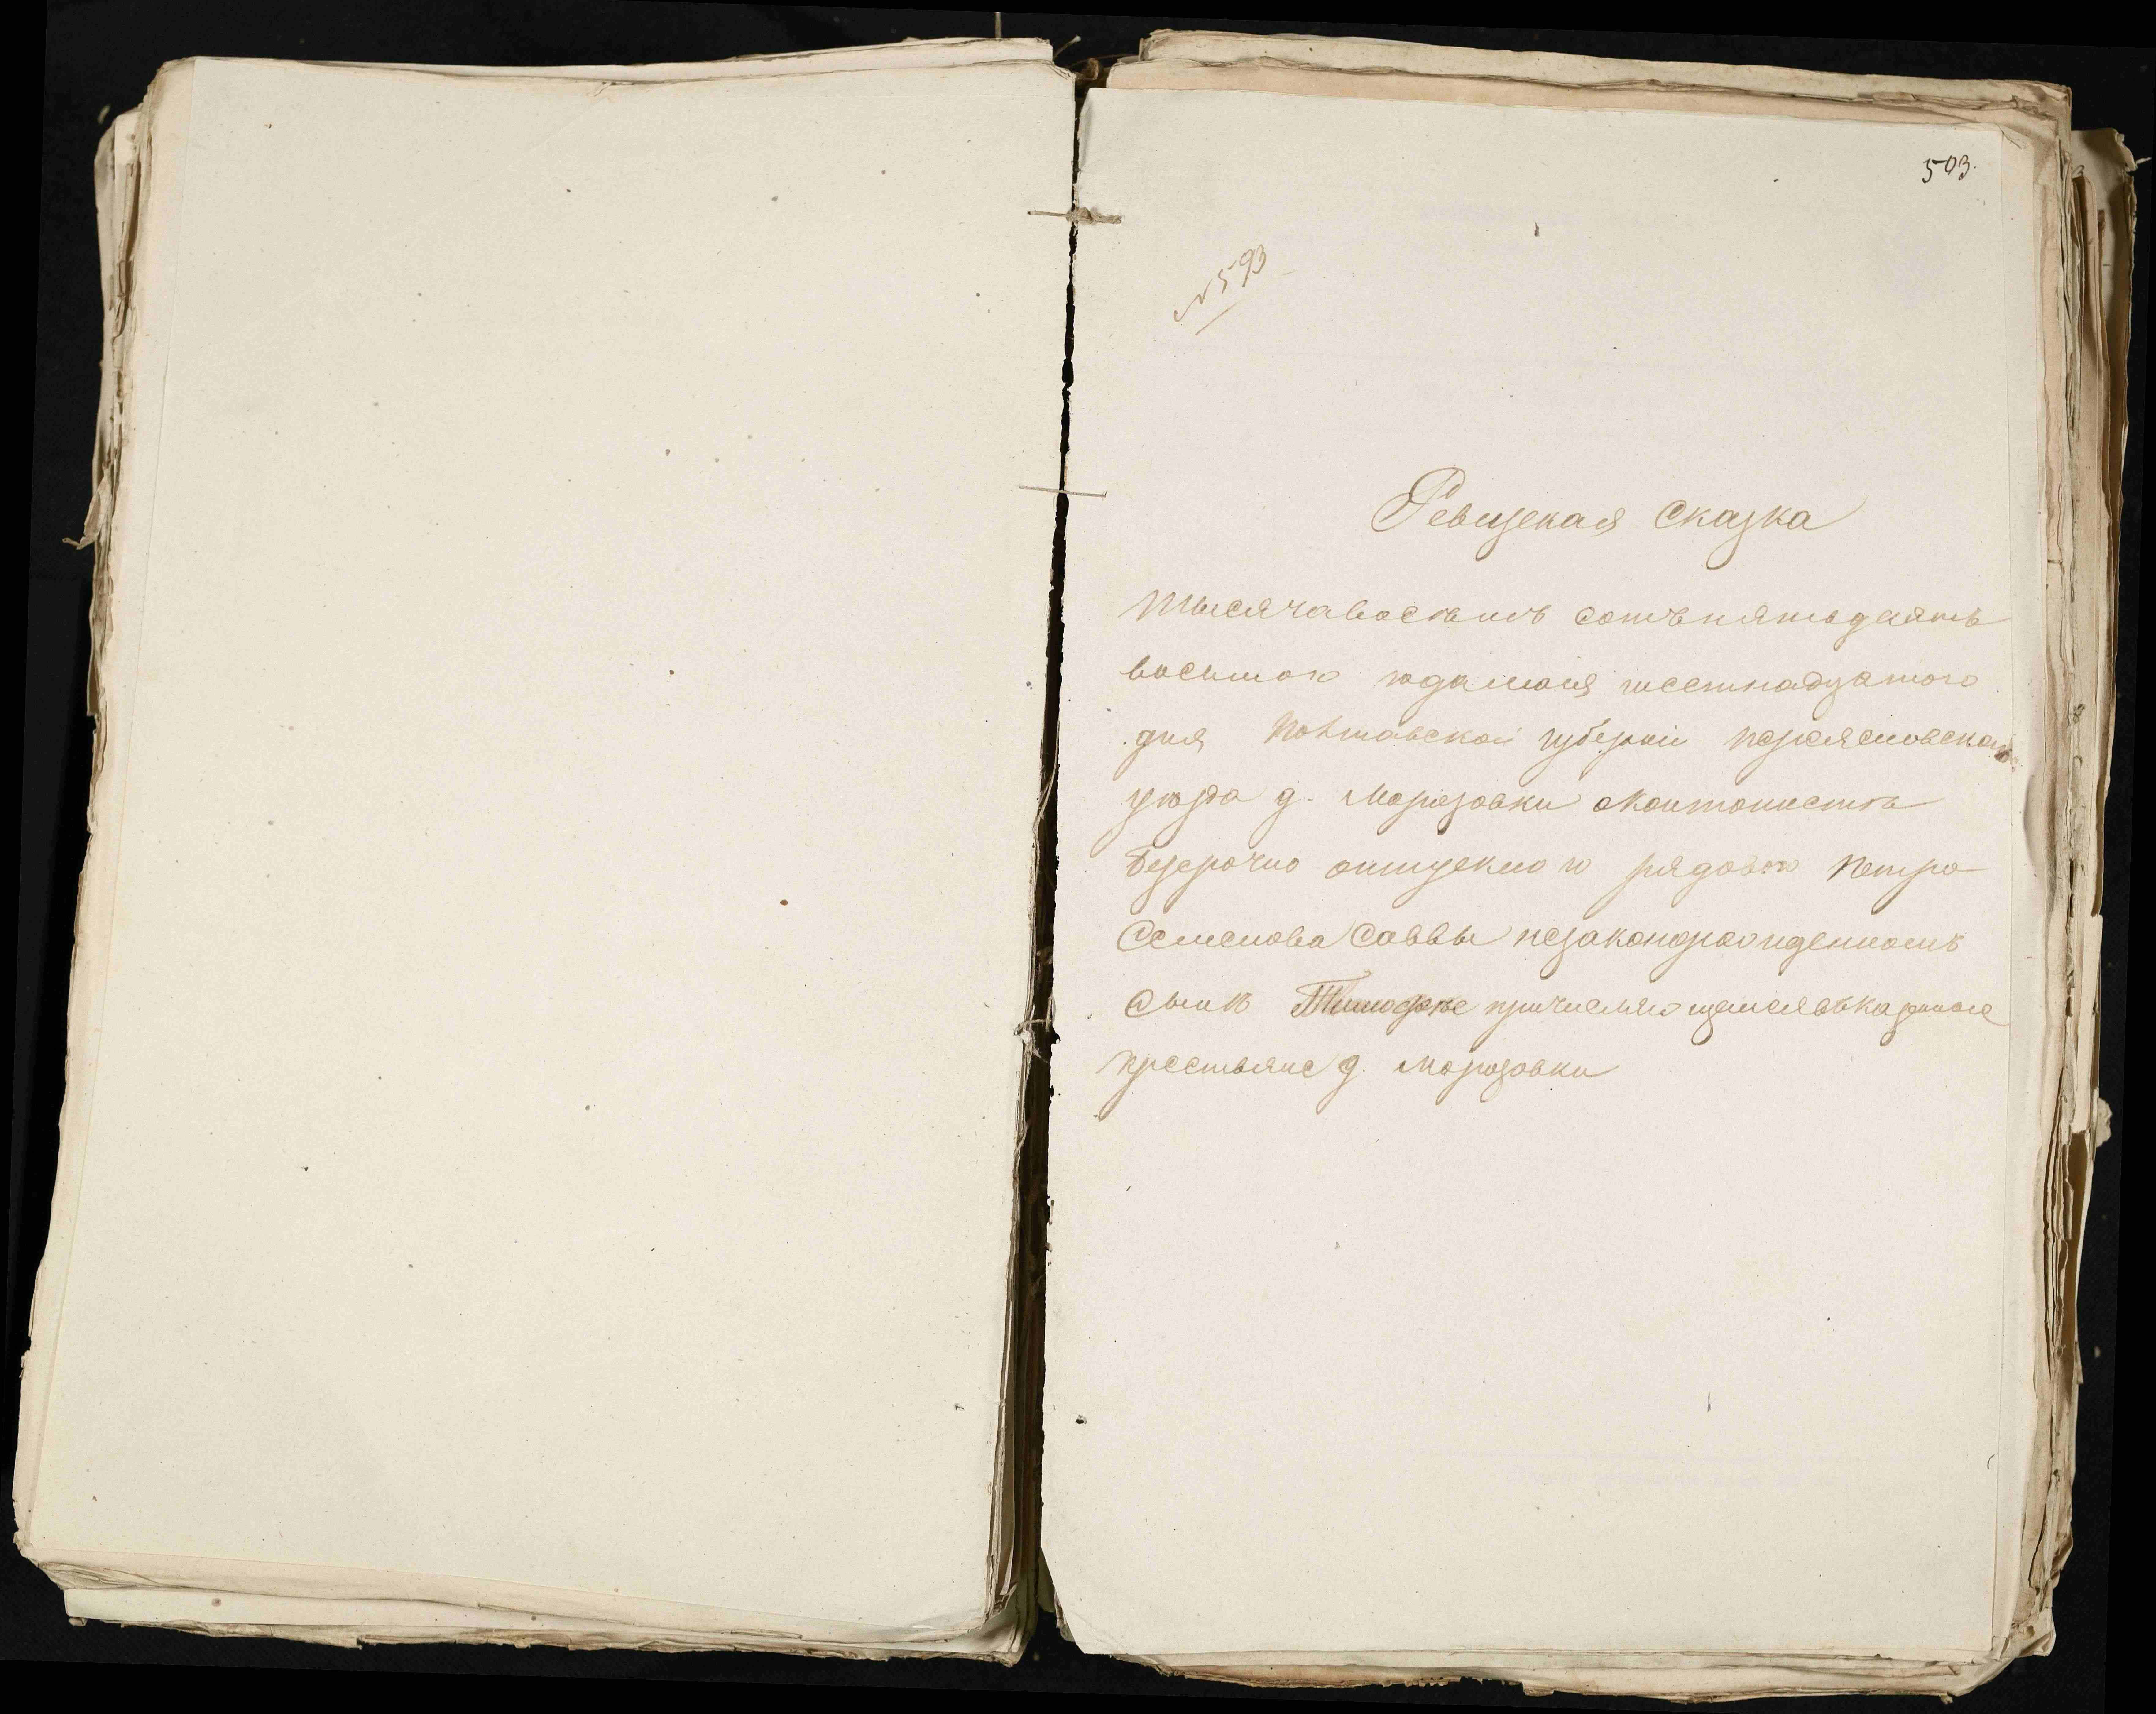 503.
№ 593
Ревизская Сказка
тысяча восемъ сотъ пятьдесятъ
восьмого года мая шестнадцатого
дня Полтавской губерніи переяславскаго
уезда д. Морозовки о кантонисте
безсрочно отпускного рядового Петра
Семенова Саввы незаконорожденномъ
сыне Тимофее причисляющемся въ казенные
крестьяне д. Морозовки